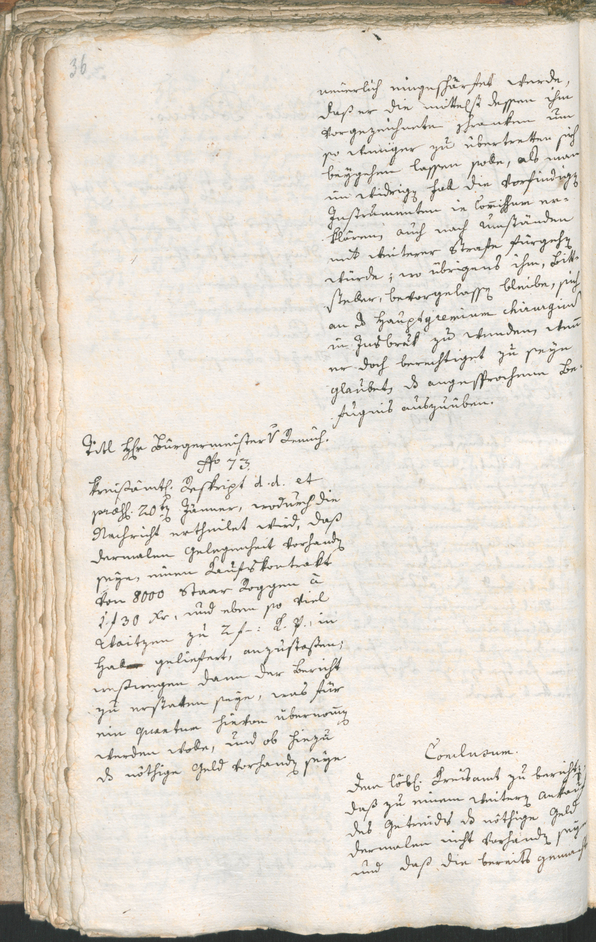 36
neuerlich eingeschärfet werde,
daß er die mittelst dessen ihm
vorgezeichneten Schranken um
so weniger zu übertretten sich
beygehen lassen solle, als man
im widrigen fall die vorfindigen
Instrumenten in Commissum er-
klären, auch nach Umständen
mit weiterer Strafe fürgehen
würde; wo übrigens ihm, Bitt-
steller, bevorgelassen bleibe, sich
an das Hauptgremium chirurgicum
in Insbruk zu wenden, wenn
er doch berechtiget zu seyn
glaubet, das angesprochene Be-
fugnis auszuüben.
Titl Hr. Bürgermeister V.
No 73.
Kreisamtl. Reskript d.d. et
praes. 20ten Jänner, wodurch die
Nachricht ertheilet wird, daß
dermalen Gelegenheit vorhanden
seye, einen Kaufskontrakt
von 8000 Staar Roggen à
1 f 30 Xr, und eben so viel
Waitzen zu 2 f in
Hall geliefert, anzustoßen;
weßwegen dann der Bericht
zu erstatten seye, was für
ein Quantum hievon übernommen
werden wolle, und ob hiezu
das nöthige Geld vorhanden seye
Conclusum.
Dem löbl. Kreisamt zu berichten,
daß zu einem weitern Ankauf
des Getreides das nöthige Geld
dermalen nicht vorhanden seye
und daß die bereits